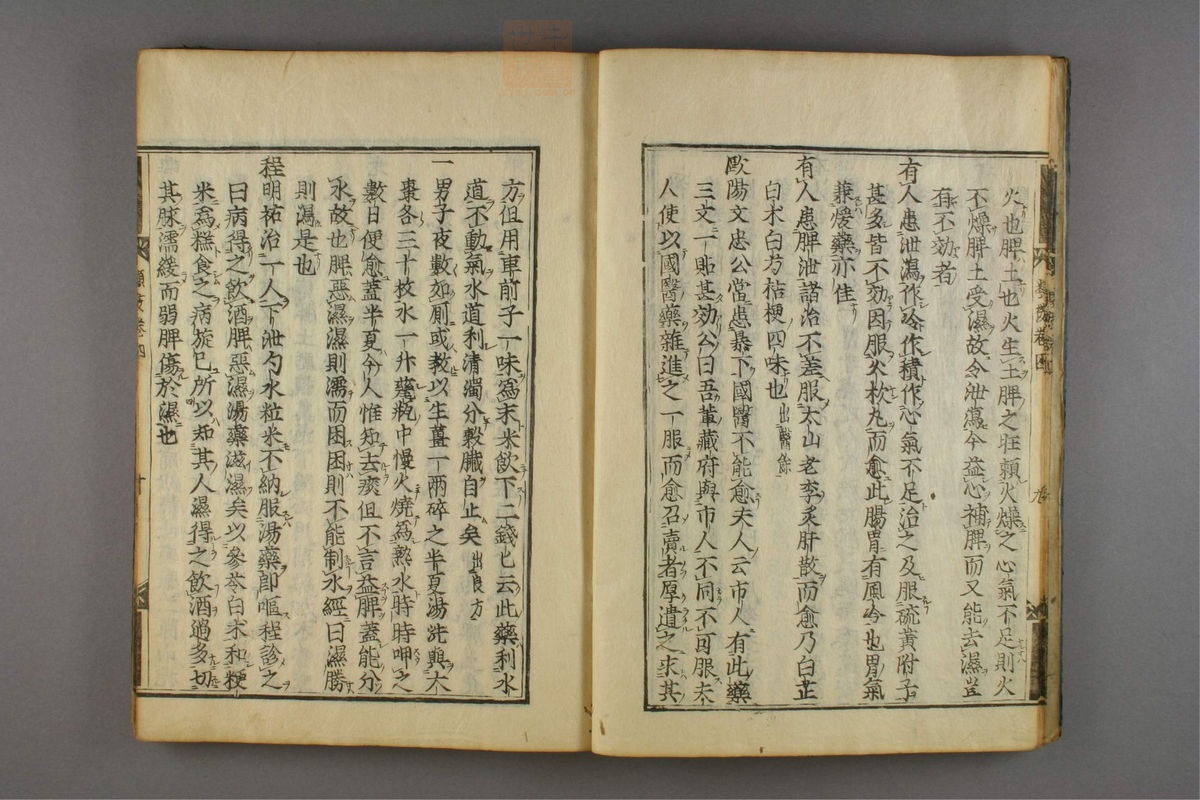 火也脾土也火生土脾之旺賴火燥之心氣不足則火
不燥脾土受濕故令泄瀉今益心補脾而又能去濕豈
有不効者
有人患泄瀉作冷作積作心氣不足治之及服硫黃附子
甚多皆不効因服火杴丸而愈此腸胃有風冷也胃氣
兼煖藥亦佳
有人患脾泄諸治不差服太山老李炙肝散而愈乃白芷
白朮白芍桔梗四味也出醫餘
歐陽文忠公當患暴下國醫不能愈夫人云市人有此藥
三文一貼甚効公曰吾輩藏府與市人不同不可服夫
人使以國醫藥雜進之一服而愈召賣者厚遺之求其
方但用車前子一味爲末米飲下二錢匕云此藥利水
道不動氣水道利清濁分穀臟自止矣出良方
一男子夜數如厠或教以生薑一兩碎之半夏湯洗與大
棗各三十枚水一升甆瓶中慢火燒爲熟水時時呷之
數日便愈蓋半夏今人惟知去痰但不言益脾蓋能分
水故也脾惡濕濕則濡而困困則不能制水經曰濕勝
則瀉是也
程明祐治一人下泄勺水粒米不納服湯藥卽嘔程診之
曰病得之飲酒脾惡濕湯藥滋濕矣以參苓白朮和粳
米爲糕食之病旋已所以知其人濕得之飲酒過多切
其脉濡緩而弱脾傷於濕也
類案卷四
十